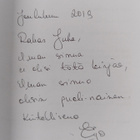 Joulukuu 2019
Rakas Juha,
ilman sinua
ei olisi tätä kirjaa,
ilman sinua
olisin puoli-nainen
Kiitollisena